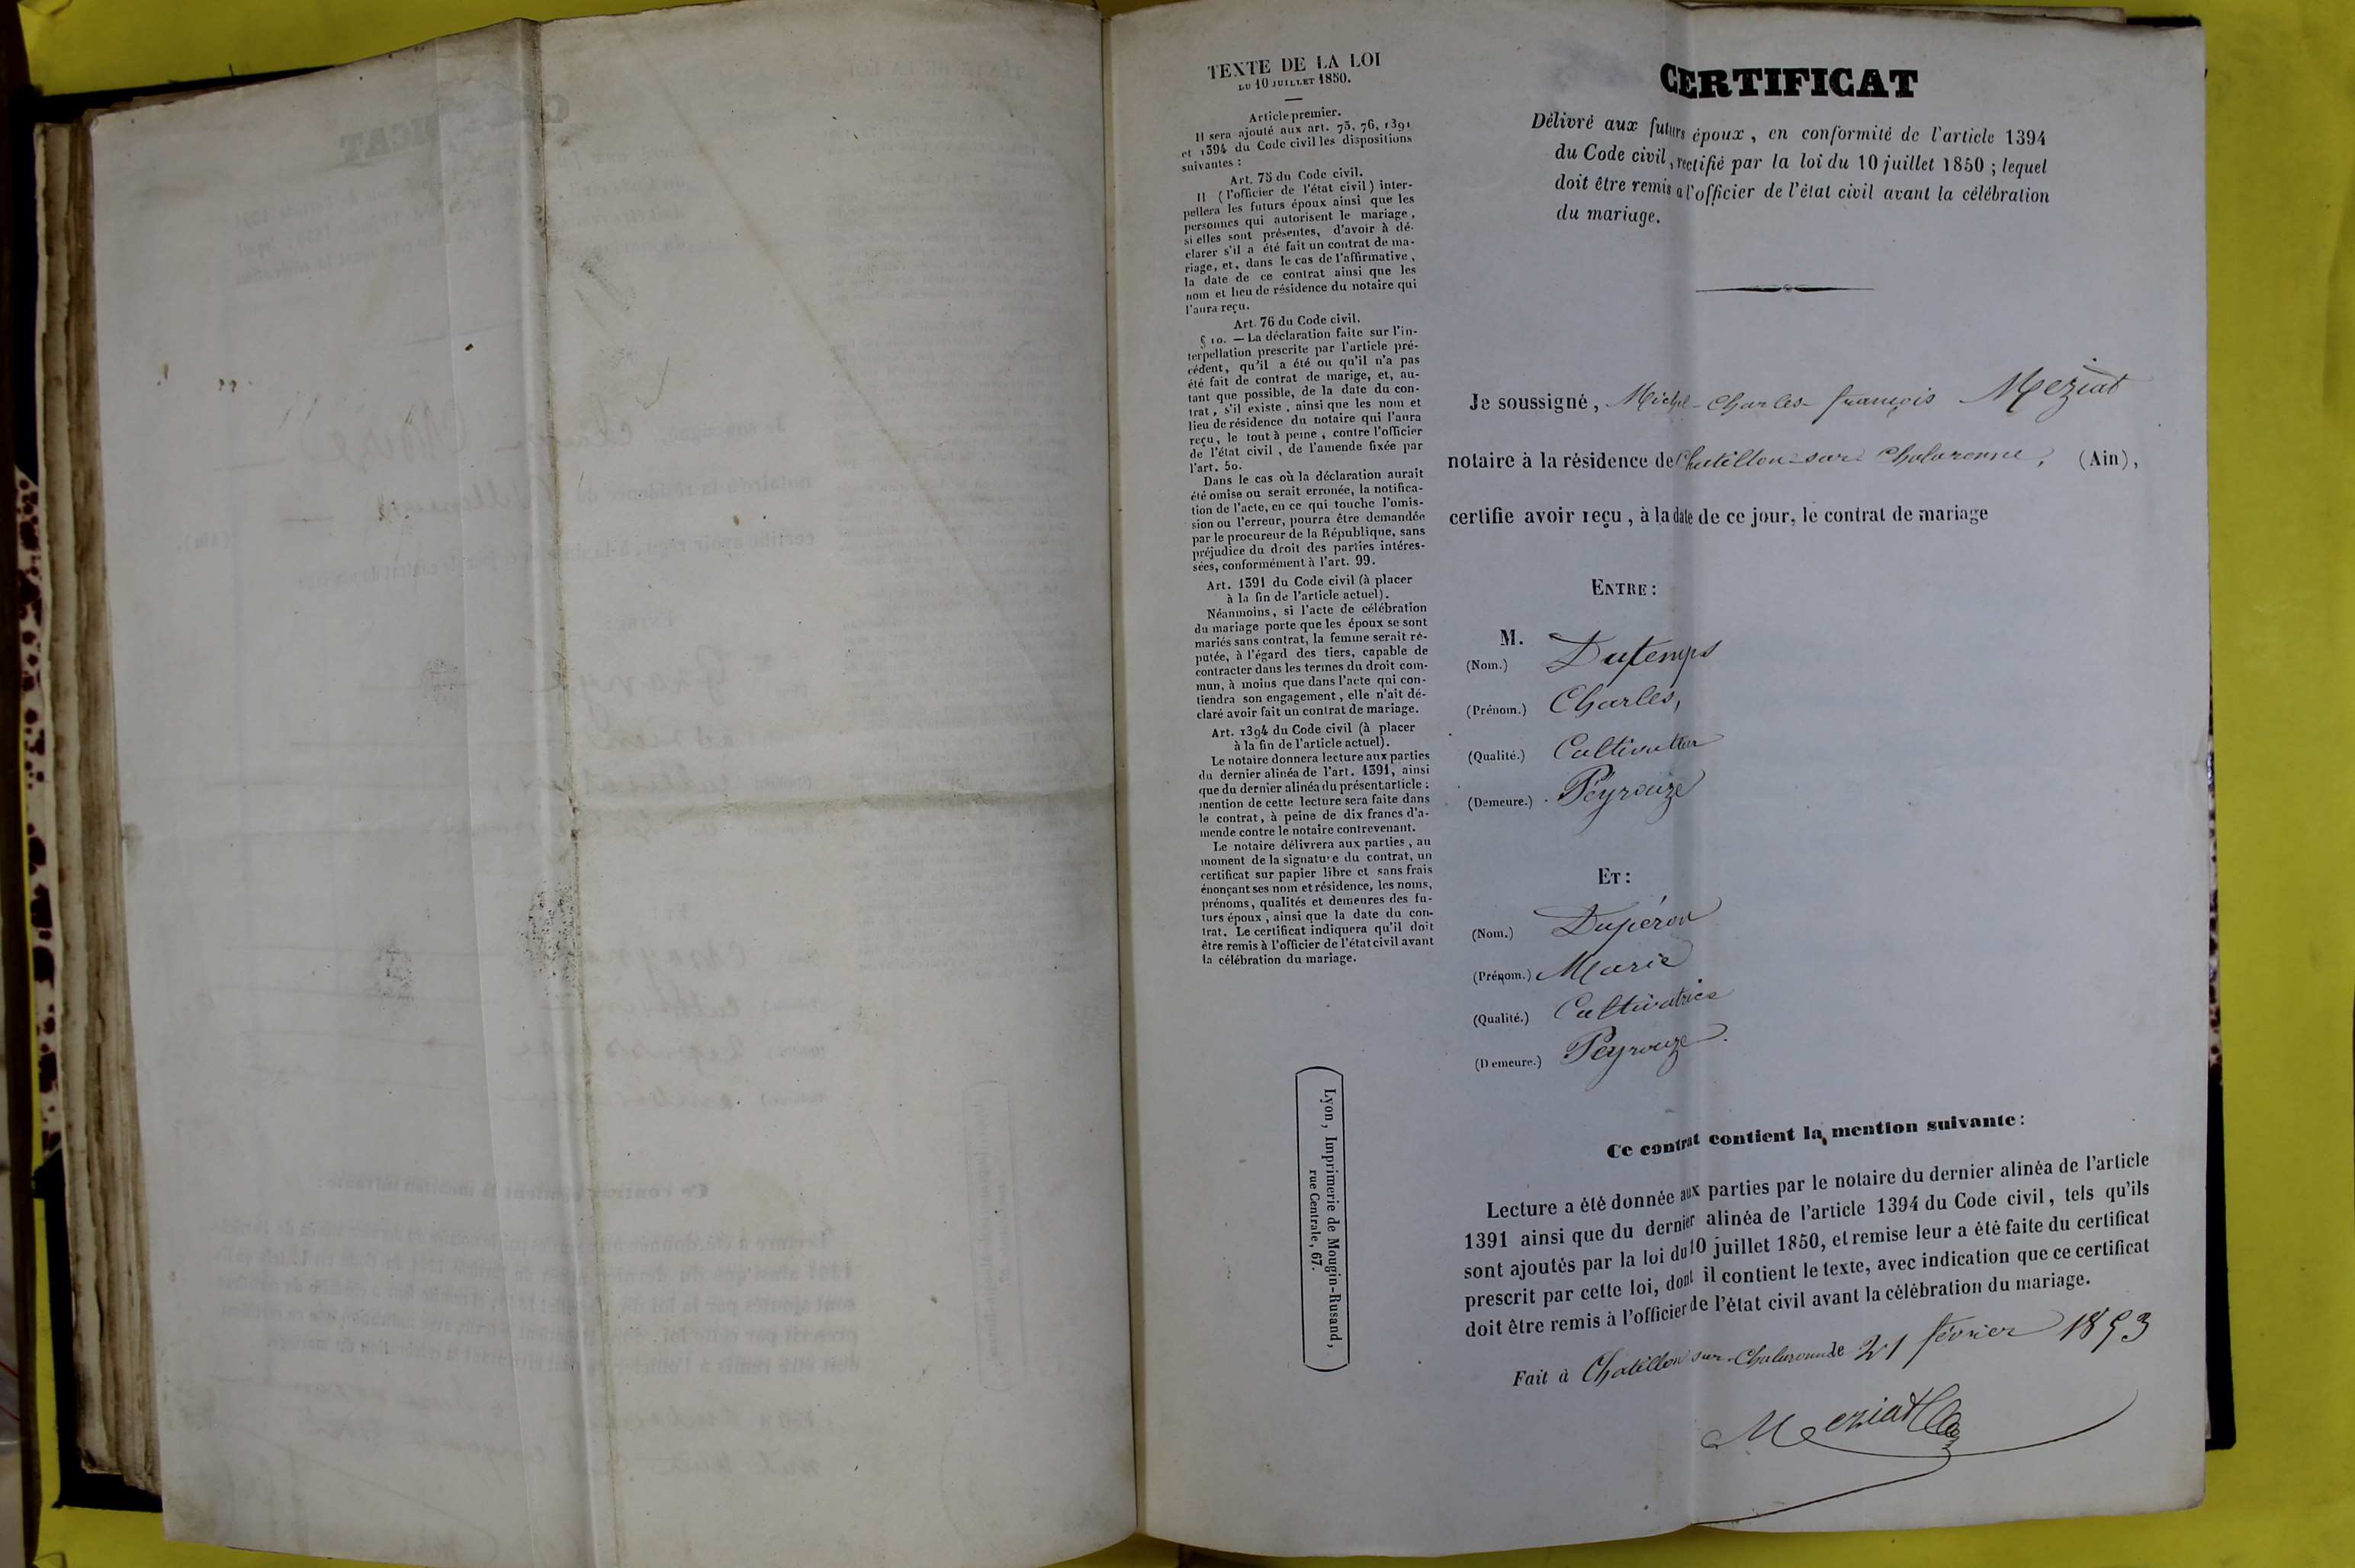 TEXTE DE LA LOI
DU 10 JUILLET 1850.
Article premier.
Il sera ajouté aux art. 75, 76, 1391
et 1394 du Code civil les dispositions
suivantes :
Art. 75 du Code civil.
Il (l'officier de l'état civil) inter-
pellera les futurs époux ainsi que les
personnes qui autorisent le mariage,
si elles sont présentes, d'avoir à dé-
clarer s'il a été fait un contrat de ma-
riage, et, dans le cas de l'affirmative,
la date de ce contrat ainsi que les
nom et lieu de résidence du notaire qui
l'aura reçu.
Art. 76 du Code civil.
§ 10. — La déclaration faite sur l'in-
terpellation prescrite par l'article pré-
cédent, qu'il a été ou qu'il n'a pas
été fait de contrat de marige, et, au-
tant que possible, de la date du con-
trat, s'il existe, ainsi que les nom et
lieu de résidence du notaire qui l'aura
reçu, le tout à peine, contre l'officier
de l'état civil, de l'amende fixée par
l'art. 50.
Dans le cas où la déclaration aurait
été omise ou serait erronée, la notifica-
tion de l'acte, en ce qui touche l'omis-
sion ou l'erreur, pourra être demandée
par le procureur de la République, sans
préjudice du droit des parties intéres-
sées, conformément à l'art. 99.
Art. 1391 du Code civil (à placer
à la fin de l'article actuel).
Néanmoins, si l'acte de célébration
du mariage porte que les époux se sont
mariés sans contrat, la femme serait ré-
putée, à l'égard des tiers, capable de
contracter dans les termes du droit com-
mun, à moins que dans l'acte qui con-
tiendra son engagement, elle n'ait dé-
claré avoir fait un contrat de mariage.
Art. 1394 du Code civil (à placer
à la fin de l'article actuel).
Le notaire donnera lecture aux parties
du dernier alinéa de l'art. 1391, ainsi
que du dernier alinéa du présent article :
mention de cette lecture sera faite dans
le contrat, à peine de dix francs d'a-
mende contre le notaire contrevenant.
Le notaire délivrera aux parties, au
moment de la signature du contrat, un
certificat sur papier libre et sans frais
énonçant ses nom et résidence, les noms,
prénoms, qualités et demeures des fu-
turs époux, ainsi que la date du con-
trat. Le certificat indiquera qu'il doit
être remis à l'officier de l'état civil avant
la célébration du mariage.
Lyon, Imprimerie de Mougin-Rusand,
rue Centrale, 67.
CERTIFICAT
Délivré aux futurs époux, en conformité de l'article 1394
du Code civil, rectifié par la loi du 10 juillet 1850 ; lequel
doit être remis à l'officier de l'état civil avant la célébration
du mariage.
Je soussigné, Michel-Charles-françois Meziat
notaire à la résidence de Chatillon-sur-Chalaronne, (Ain),
certifie avoir reçu, à la date de ce jour, le contrat de mariage
ENTRE :
M.
(Nom.) Dutemps
(Prénom.) Charles,
(Qualité.) Cultivateur
(Demeure.) Peyrouze
ET :
(Nom.) Dupéron
(Prénom.) Marie
(Qualité.) Cultivatrice
(Demeure.) Peyrouze.
Ce contrat contient la mention suivante :
Lecture a été donnée aux parties par le notaire du dernier alinéa de l'article
1391 ainsi que du dernier alinéa de l'article 1394 du Code civil, tels qu'ils
sont ajoutés par la loi du 10 juillet 1850, et remise leur a été faite du certificat
prescrit par cette loi, dont il contient le texte, avec indication que ce certificat
doit être remis à l'officier de l'état civil avant la célébration du mariage.
Fait à Chatillon sur-Chalaronne le 21 février 1853
Meziat